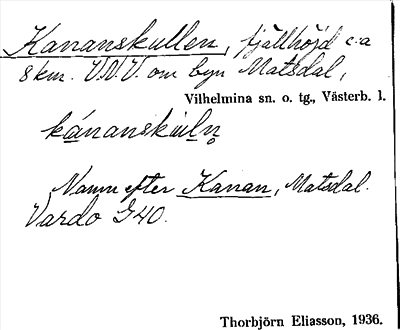 Kananskullen, fjällhöjd c:a
8 km. V.N.V. om byn Matsdal,
Vilhelmina sn. o. tg., Västerb. l.
kánanskùl̥n̥
Namn efter Kanan, Matsdal.
Vardo G40.
Thorbjörn Eliasson, 1936.